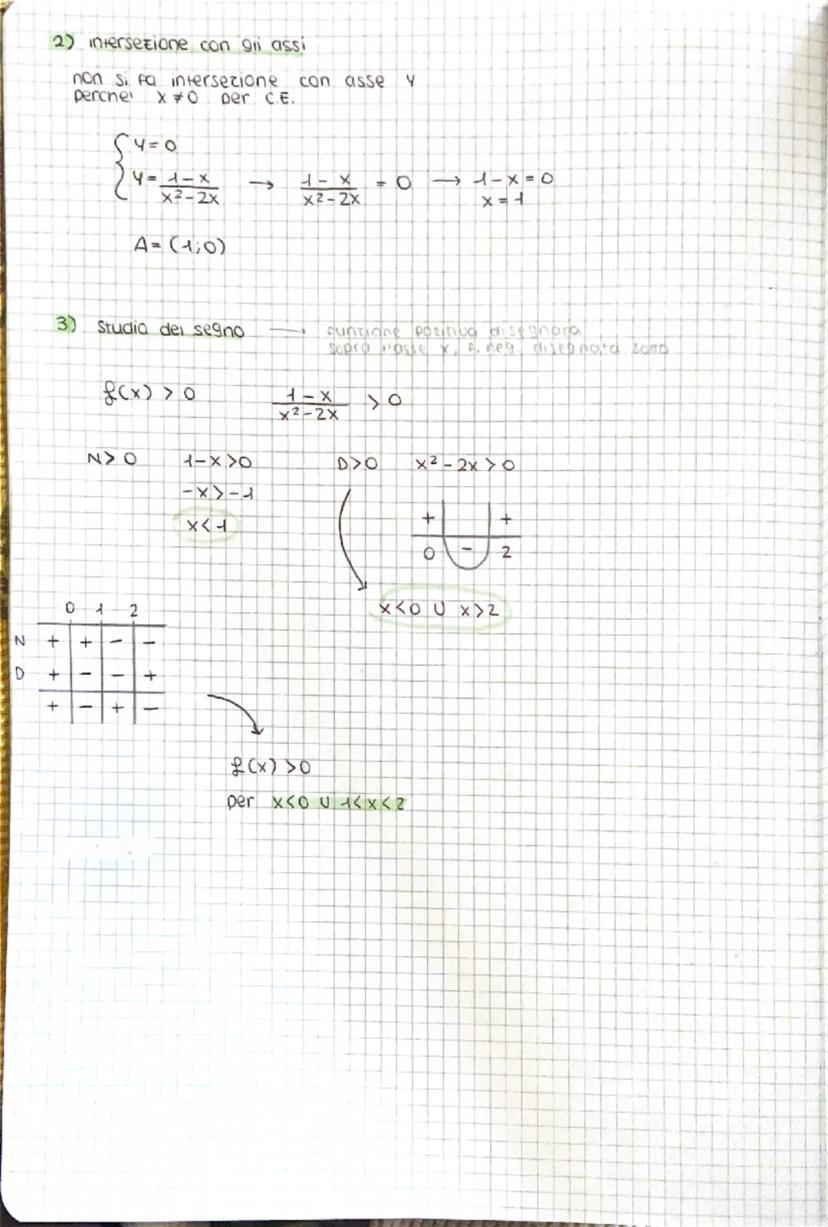 2) intersezione con gli assi
non si fa intersezione con asse y
perche' x ≠ 0 per C.E.
{ y = 0
{ y = (1-x)/(x²-2x) → (1-x)/(x²-2x) = 0 → 1-x=0
x = 1
A = (1;0)
3) studio dei segno → funzione positiva disegnata
sopra l'asse x, f. neg. disegnata sotto
f(x) > 0 (1-x)/(x²-2x) > 0
N > 0 1-x > 0 D > 0 x²-2x > 0
-x > -1
x < 1
+ +
0 - 2
x<0 ∪ x>2
0 1 2
N + + - -
D + - - +
+ - + -
f(x) > 0
per x<0 ∪ 1<x<2